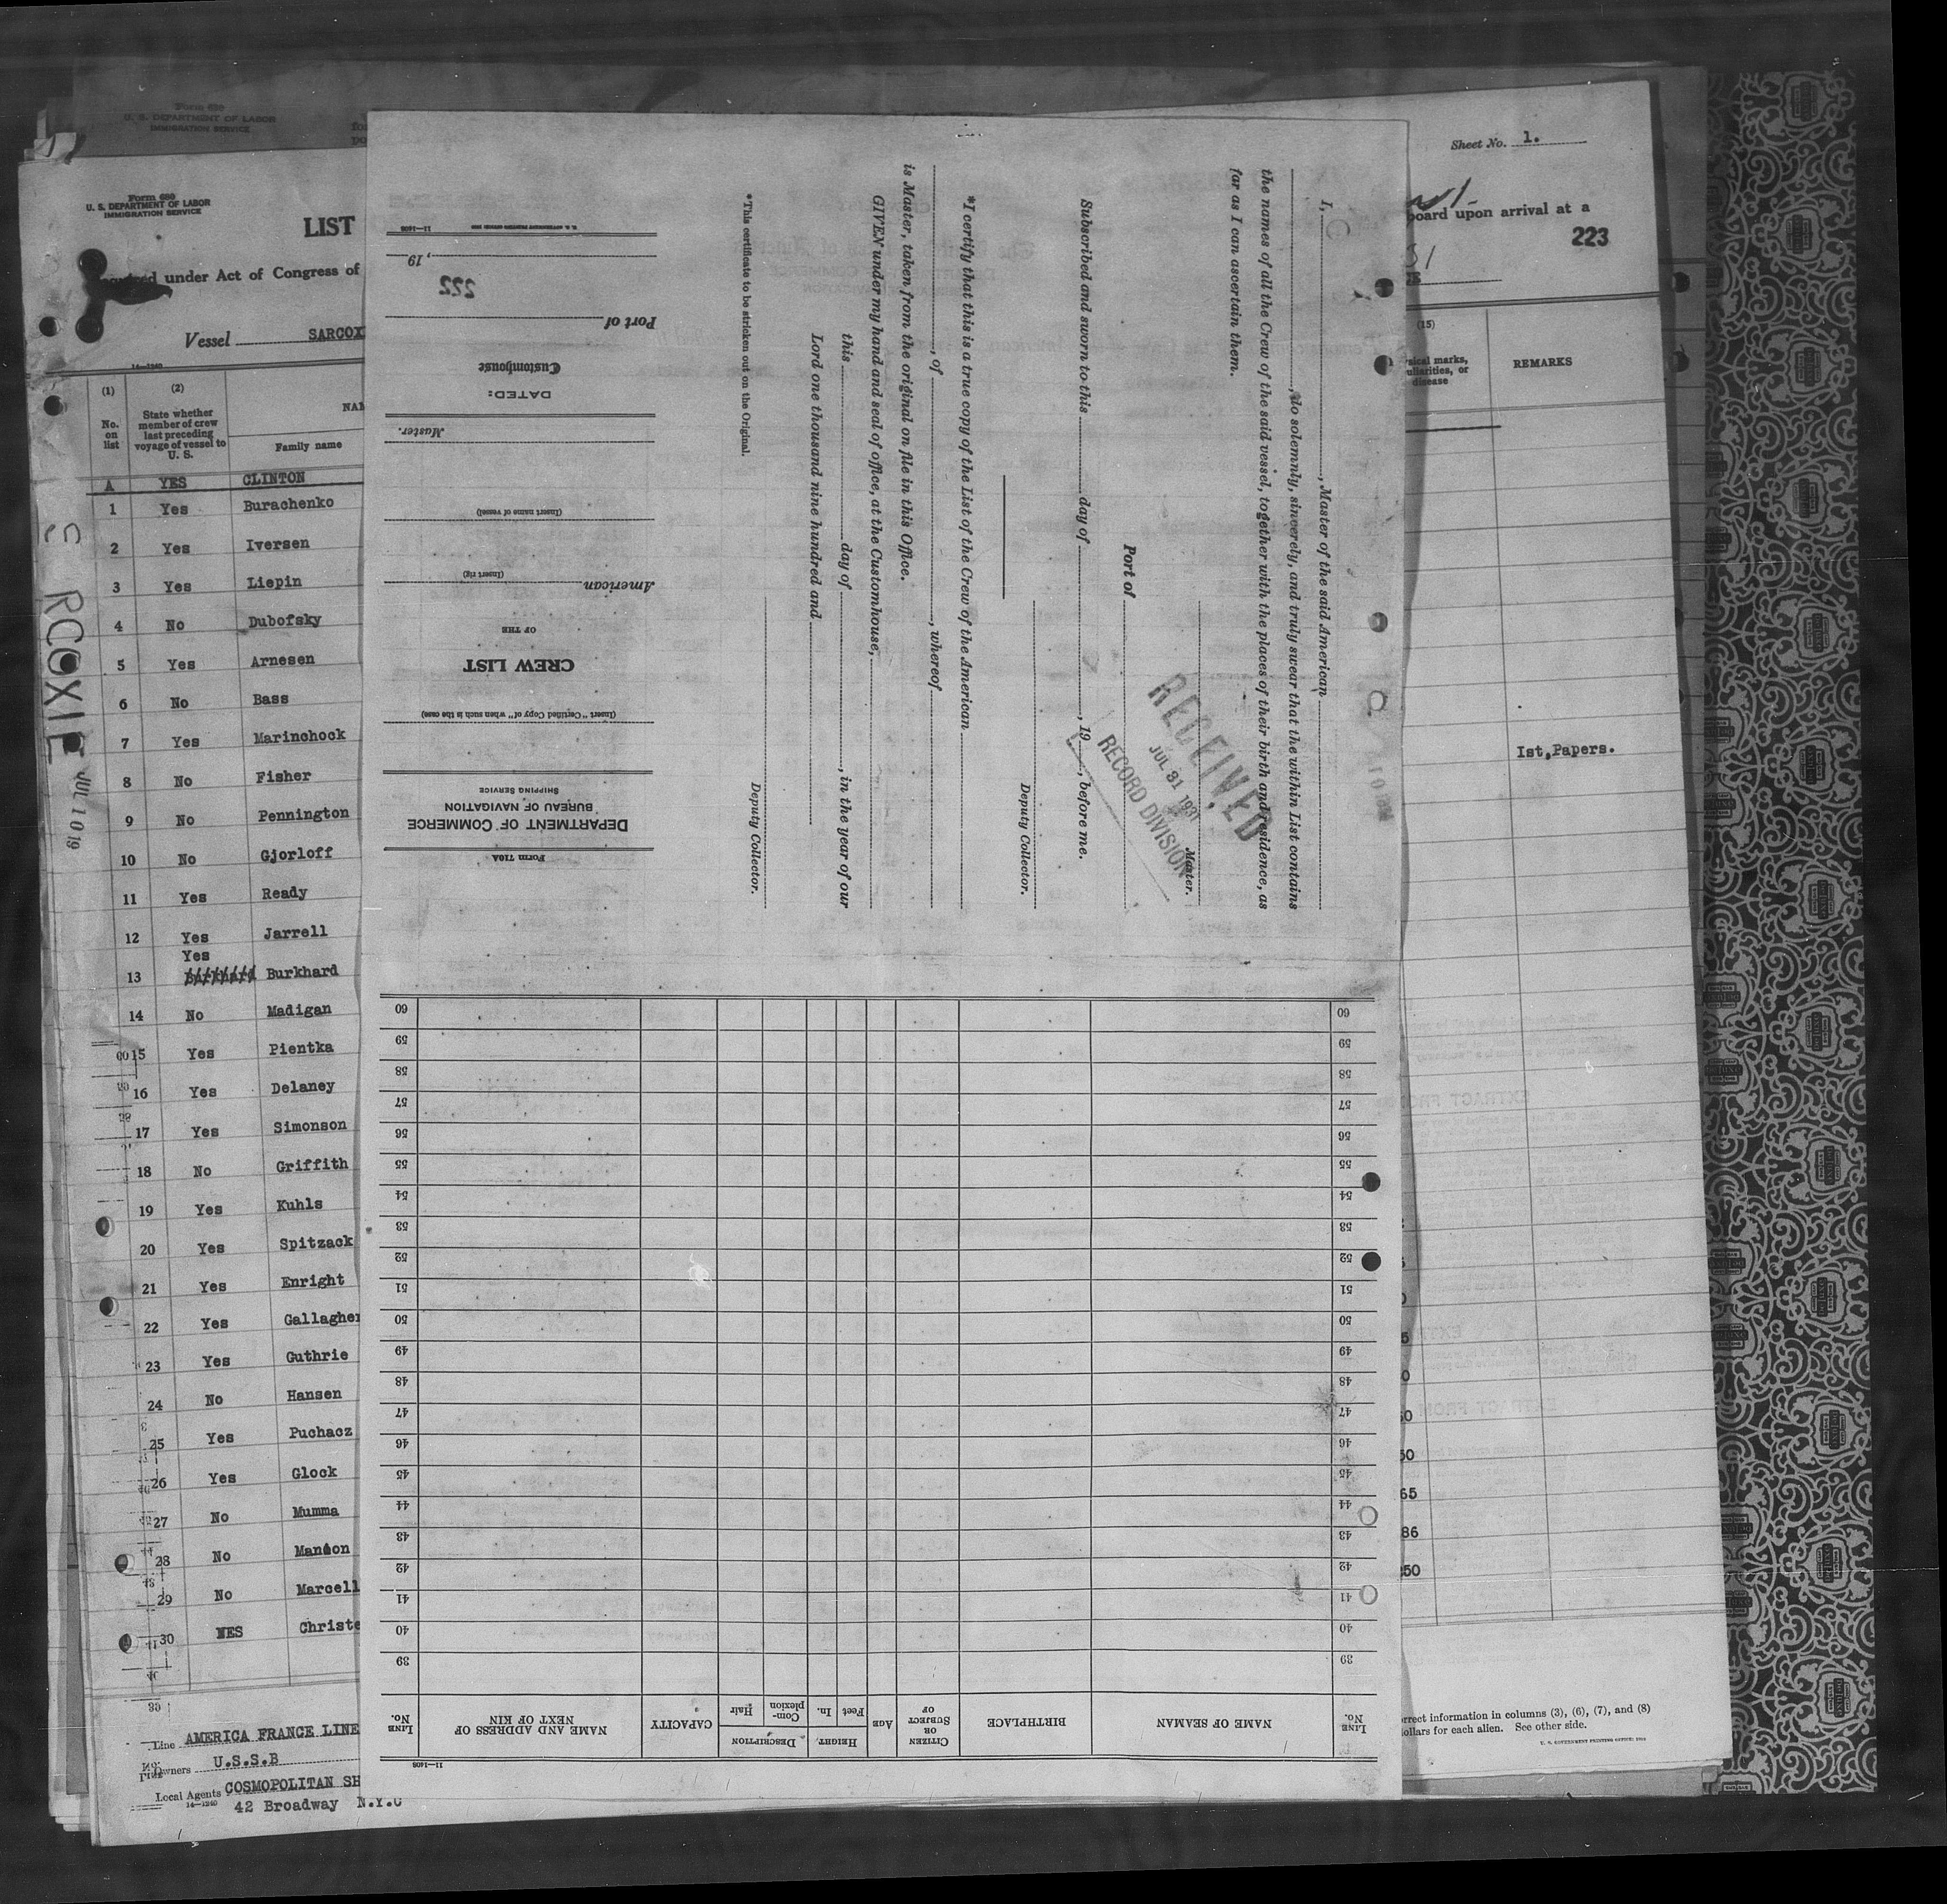 Form 680
U. S. DEPARTMENT OF LABOR
IMMIGRATION SERVICE
Form 680
U. S. DEPARTMENT OF LABOR
IMMIGRATION SERVICE
LIST
under Act of Congress of
Vessel SARCOX
14-1240
(1) (2)
No. on list
State whether member of crew last preceding voyage of vessel to U. S.
NAM
Family name
A YES CLINTON
1 Yes Burachenko
2 Yes Iversen
3 Yes Liepin
4 No Dubofsky
5 Yes Arnesen
6 No Bass
7 Yes Marinchock
8 No Fisher
9 No Pennington
10 No Gjorloff
11 Yes Ready
12 Yes Jarrell
Yes
13 Burkhard
14 No Madigan
15 Yes Pientka
16 Yes Delaney
17 Yes Simonson
18 No Griffith
19 Yes Kuhls
20 Yes Spitzack
21 Yes Enright
22 Yes Gallagher
23 Yes Guthrie
24 No Hansen
25 Yes Puchacz
26 Yes Glock
27 No Mumma
28 No
29 No Marcell
30 Christe
Line AMERICA FRANCE LINE
Owners U.S.S.B
Local Agents COSMOPOLITAN SH
14-1240
42 Broadway N.Y.C
S RCOXIE
JUL 10 19
I, , Master of the said American
, do solemnly, sincerely, and truly swear that the within List contains
the names of all the Crew of the said vessel, together with the places of their birth and residence, as
far as I can ascertain them.
Master.
Port of
Subscribed and sworn to this day of , 19 , before me.
Deputy Collector.
*I certify that this is a true copy of the List of the Crew of the American
, of , whereof
is Master, taken from the original on file in this Office.
GIVEN under my hand and seal of office, at the Customhouse,
this day of , in the year of our
Lord one thousand nine hundred and
Deputy Collector.
*This certificate to be stricken out on the Original.
RECEIVED
JUL 31 1931
RECORD DIVISION
Form 710A
DEPARTMENT OF COMMERCE
BUREAU OF NAVIGATION
SHIPPING SERVICE
(Insert "Certified Copy of" when such is the case)
CREW LIST
OF THE
American
(Insert rig)
(Insert name of vessel)
Master.
DATED:
Customhouse
Port of
222
, 19
11-1408
11-1408
LINE No.
NAME OF SEAMAN
BIRTHPLACE
CITIZEN OR SUBJECT OF
AGE
HEIGHT
Feet In.
DESCRIPTION
Complexion Hair
CAPACITY
NAME AND ADDRESS OF NEXT OF KIN
LINE No.
39 39
40 40
41 41
42 42
43 43
44 44
45 45
46 46
47 47
48 48
49 49
50 50
51 51
52 52
53 53
54 54
55 55
56 56
57 57
58 58
59 59
60 60
Sheet No. 1.
board upon arrival at a
223
(15)
REMARKS
Ist,Papers.
50
65
86
rrect information in columns (3), (6), (7), and (8)
ollars for each alien. See other side.
U. S. GOVERNMENT PRINTING OFFICE